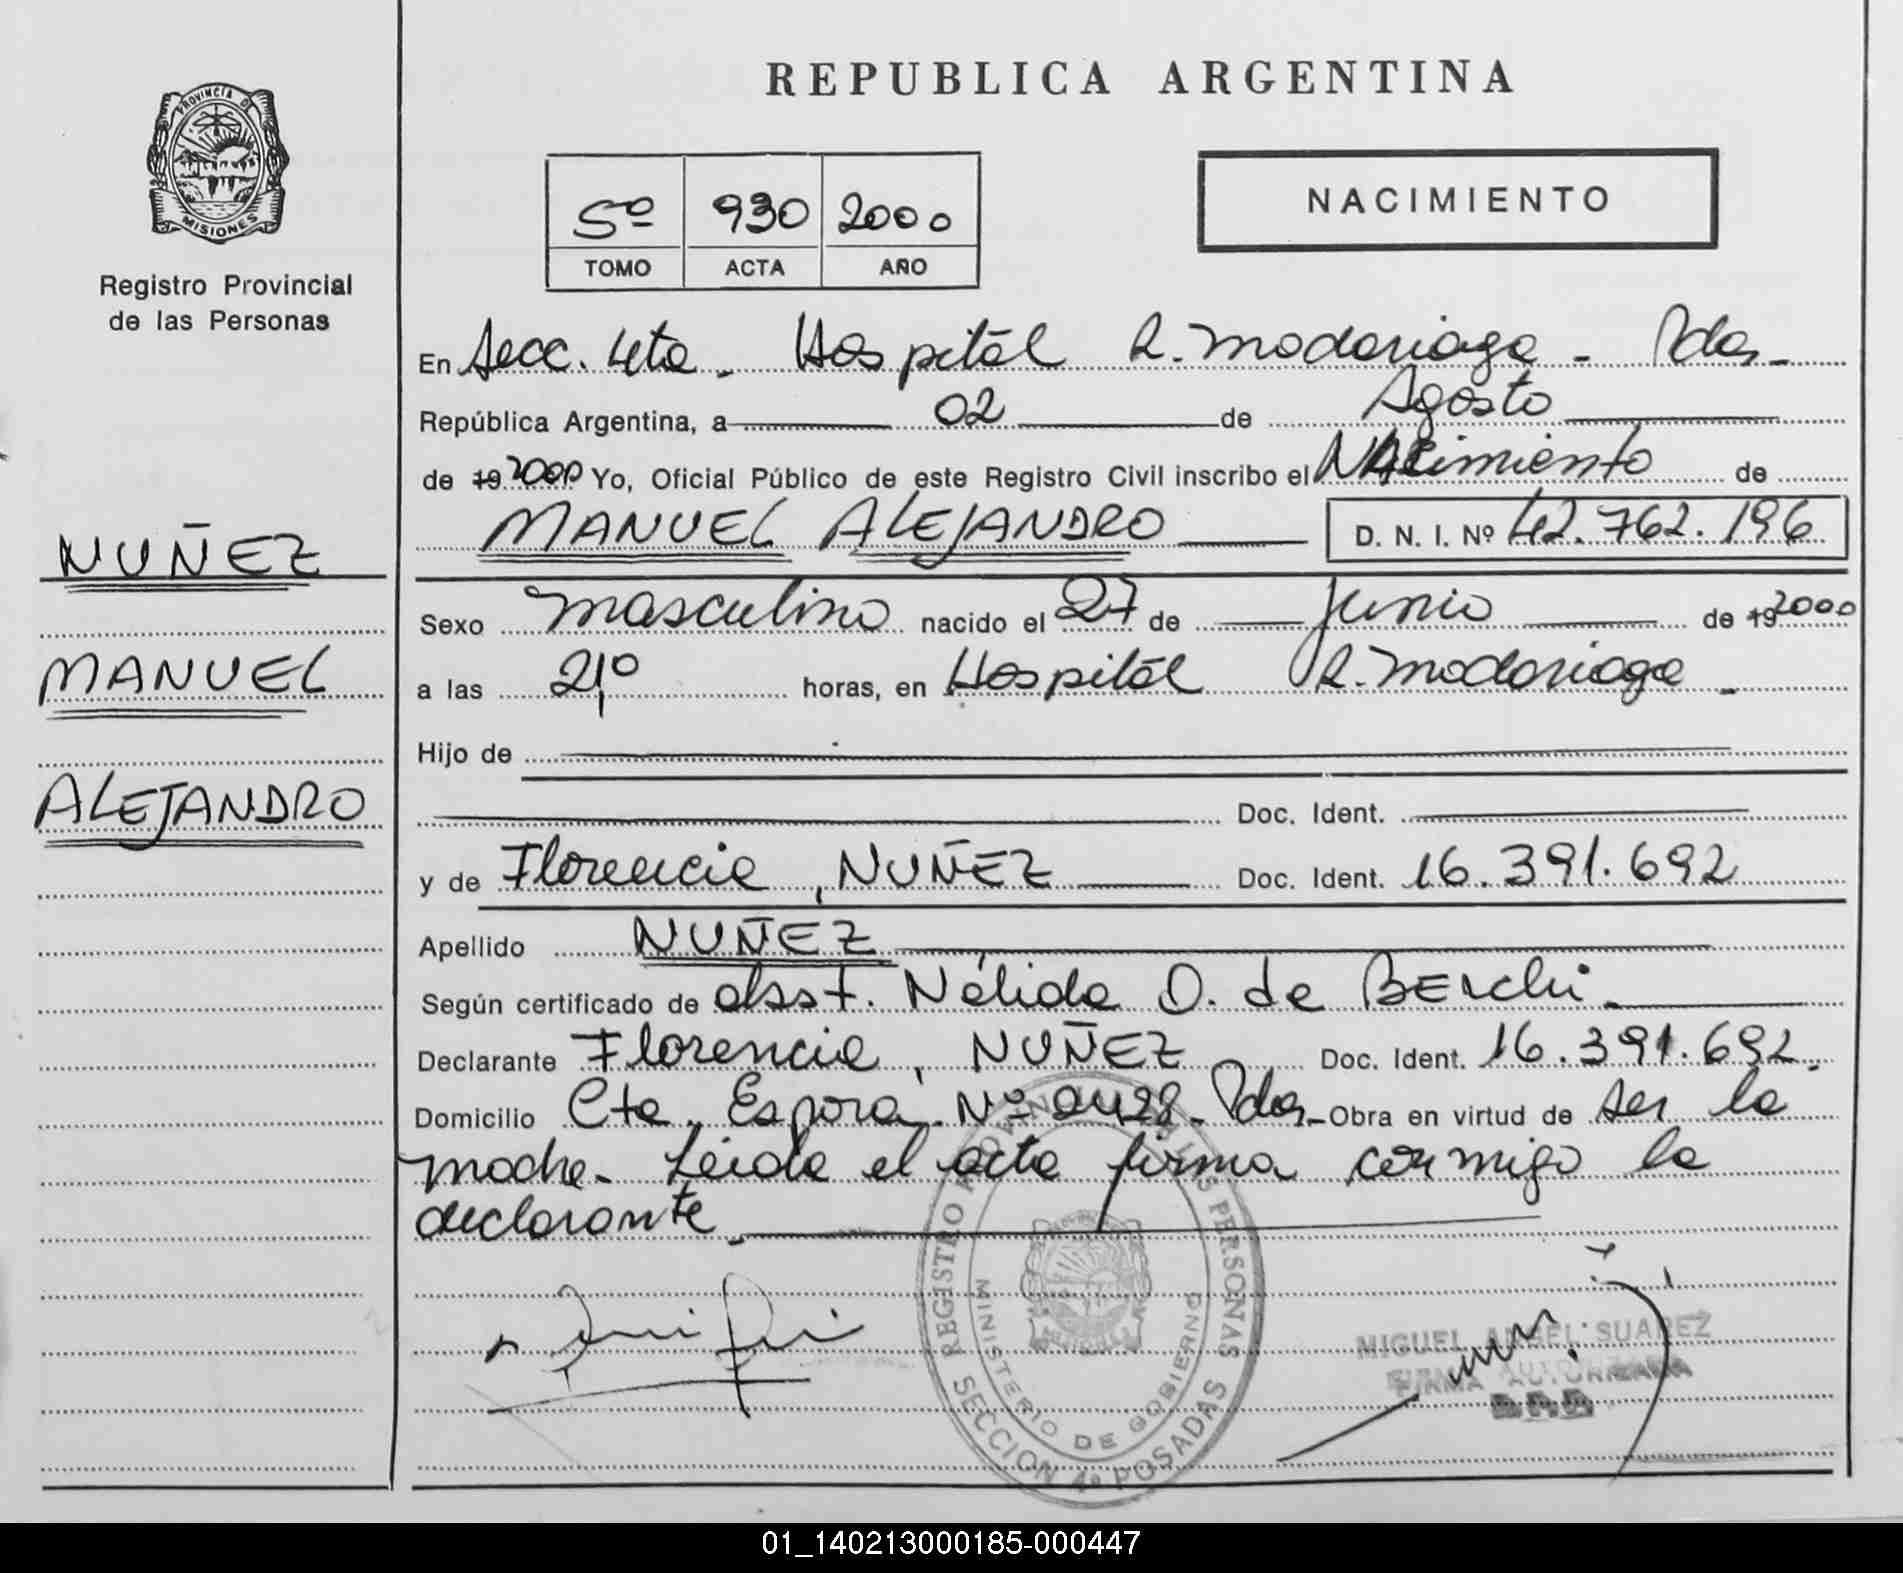 REPUBLICA ARGENTINA
PROVINCIA D
MISIONES
Registro Provincial
de las Personas
5º 930 2000
TOMO ACTA AÑO
NACIMIENTO
En Secc. 4ta - Hospitál R. Madariaga - Pdas -
República Argentina, a 02 de Agosto
de 19 2000 Yo, Oficial Público de este Registro Civil inscribo el NAcimiento de
MANUEL ALEJANDRO D. N. I. Nº 42.762.196
NUÑEZ
MANUEL
ALEJANDRO
Sexo masculino nacido el 27 de Junio de 19 2000
a las 21º horas, en Hospitál R. Madariaga -
Hijo de
Doc. Ident.
y de Florencia, NUÑEZ Doc. Ident. 16.391.692
Apellido NUÑEZ
Según certificado de obst. Nélida O. de BErchi -
Declarante Florencia, NUÑEZ Doc. Ident. 16.391.692.
Domicilio Cte. Espora Nº 2428 - Pdas - Obra en virtud de ser la
madre - Leida el acta firma conmigo la
declarante -
REGISTRO PROVINCIAL DE LAS PERSONAS
MINISTERIO DE GOBIERNO
SECCION 4ª POSADAS
MIGUEL ANGEL SUAREZ
FIRMA AUTORIZADA
01_140213000185-000447